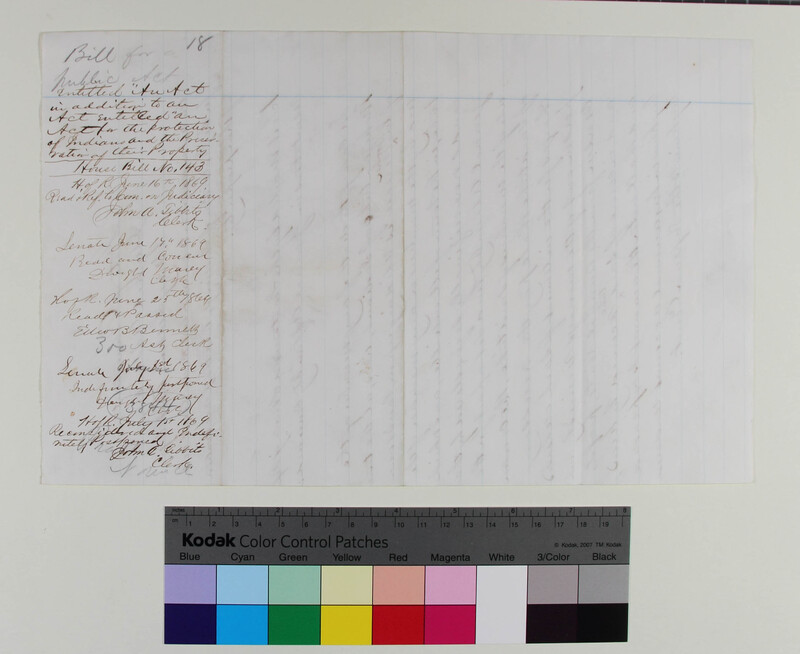 18
Bill for a
Public Act
Entitled "An Act
in addition to an
Act entitled "an
Act for the protection
of Indians and the Preser-
vation of their Property
House Bill No. 143
H of R. June 16th, 1869.
Read & Ref. to Com. on Judiciary
John A. Tibbits
Clerk
Senate June 17th 1869
Read and Concur
Dwight Marcy
Clerk
H of R. June 25th 1869
Read & Passed
Edw B Bennett
300 Ast Clerk
Senate July 1st 1869
Indefinitely postponed
Dwight Marcy
H of R. July 1st 1869
Reconsidered and Indefi-
nitely Postponed
John A. Tibbits
Clerk
inches 1 2 3 4 5 6 7 8
cm 1 2 3 4 5 6 7 8 9 10 11 12 13 14 15 16 17 18 19
Kodak Color Control Patches
© Kodak, 2007 TM: Kodak
Blue Cyan Green Yellow Red Magenta White 3/Color Black